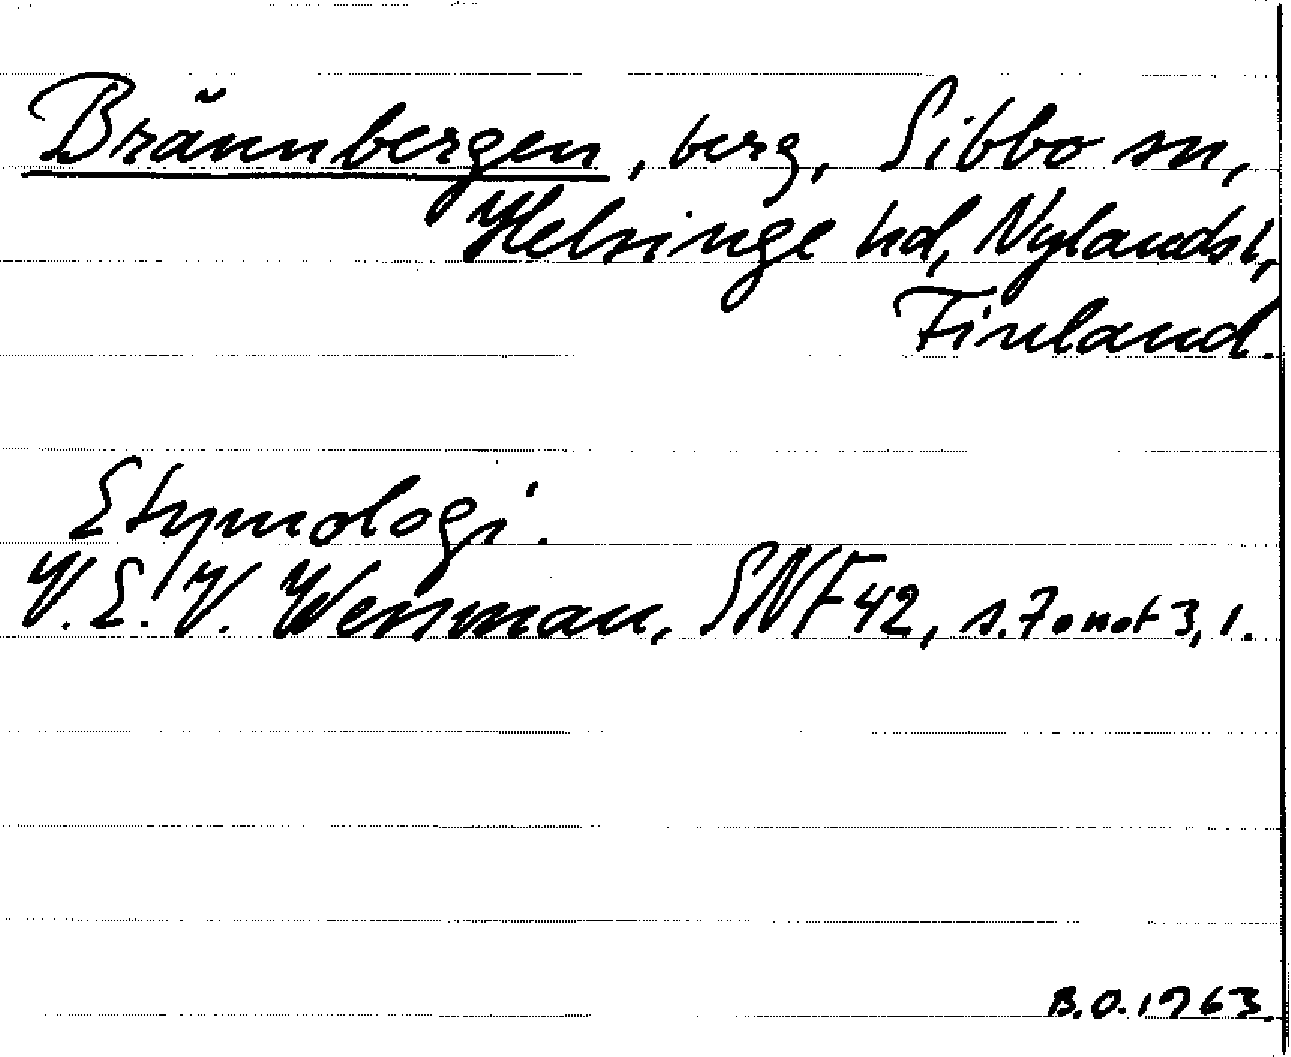 Brännbergen, berg, Sibbo sn,
Helsinge hd, Nylands l,
Finland.
Etymologi.
V. E. V. Wessman, SNF 42, s. 7 o not 3, 1.
B.O. 1963